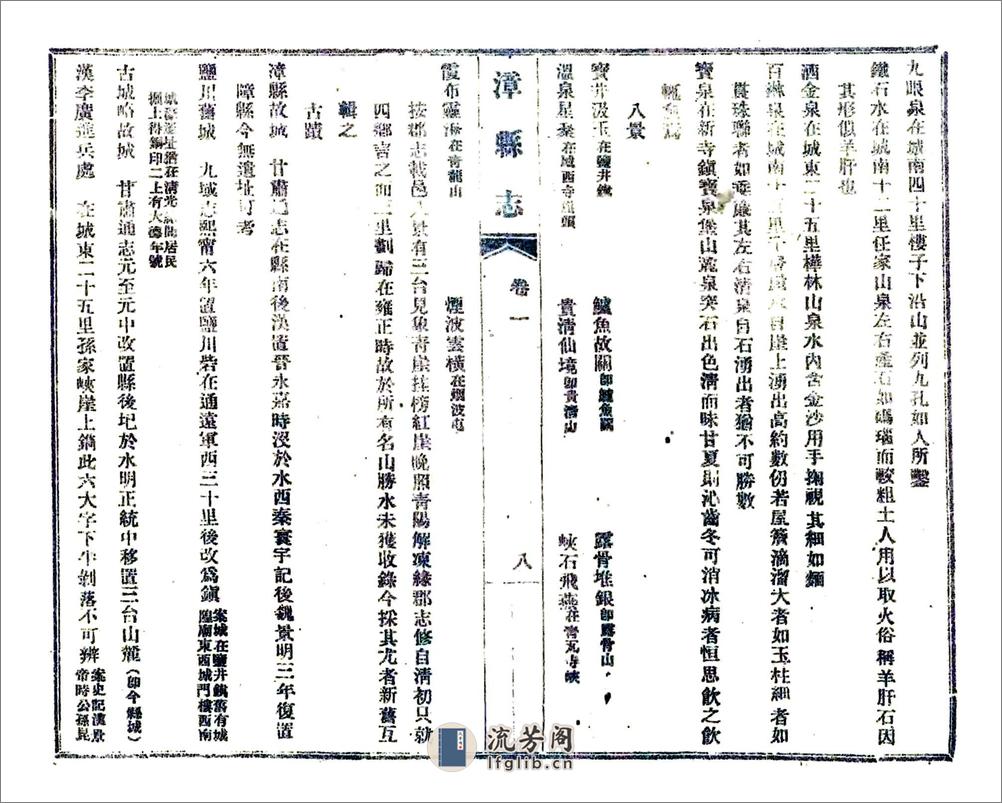 九眼泉在城南四十里樓子下沿山並列九孔如人所鑿
鐵石水在城南十二里任家山泉左右產石如碼瑙而較粗土人用以取火俗稱羊肝石因
其形似羊肝也
洒金泉在城東二十五里樺林山泉水內含金沙用手掬視其細如麵
百 泉在城南十 里 崖上湧出高約數仞若屋簷滴溜大者如玉柱細者如
貫珠聯者如垂簾其左右清泉自石湧出者猶不可勝數
寶泉在新寺鎮寶泉堡山麓泉突石出色清而味甘夏則沁齒冬可消冰病者恒思飲之飲
輒
八景
寶井汲玉在鹽井鎮 鱸魚故關即鱸魚關 露骨堆銀即露骨山
溫泉星 在城西寺 頭 貴清仙境即貴清山 峽石飛燕在 峽
漳縣志 卷一 八
霞布靈 在青龍山 煙波雲橫在烟波屯
按郡志載邑八景有三台見象青崖挂榜紅崖晚照青陽解凍緣郡志修自清初只就
四鄉言之而三里劃歸在雍正時故於所有名山勝水未獲收錄今採其尤者新舊互
輯之
古蹟
漳縣故城 甘肅通志在縣南後漢置晉永嘉時沒於水西秦寰宇記後魏景明三年復置
障縣今無遺址可考
鹽川舊城 九域志熙甯六年置鹽川砦在通遠軍西三十里後改爲鎮案城在鹽井鎮舊有城隍廟東西城門樓西南
城 址猶在清光 間居民掘土得銅印二上有大德年號
古城略故城 甘肅通志元至元中改置縣後圮於水明正統中移置三台山麓（即今縣城）
漢李廣進兵處 在城東二十五里孫家峽崖上鐫此六大字下半剝落不可辨案史記漢景帝時公孫昆
流芳阁
lfglib.cn